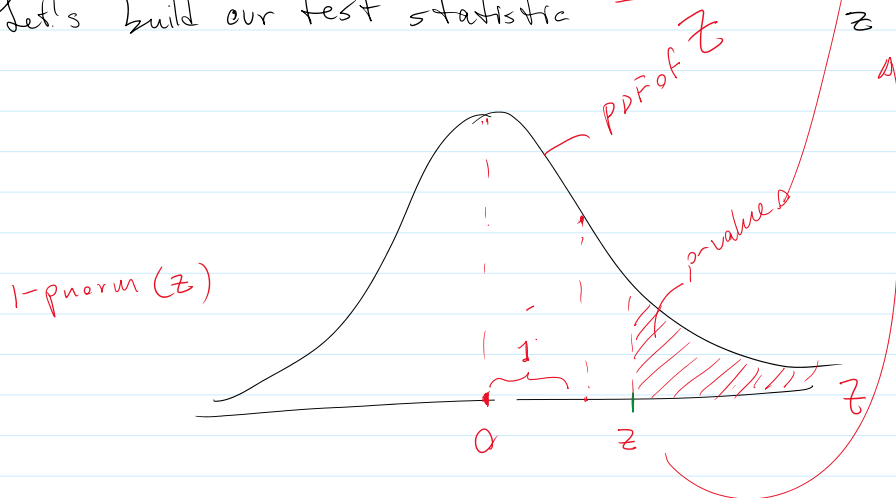 Let's build our test statistic
z
PDF of Z
p-value
1-pnorm(z)
1
Z
0
z